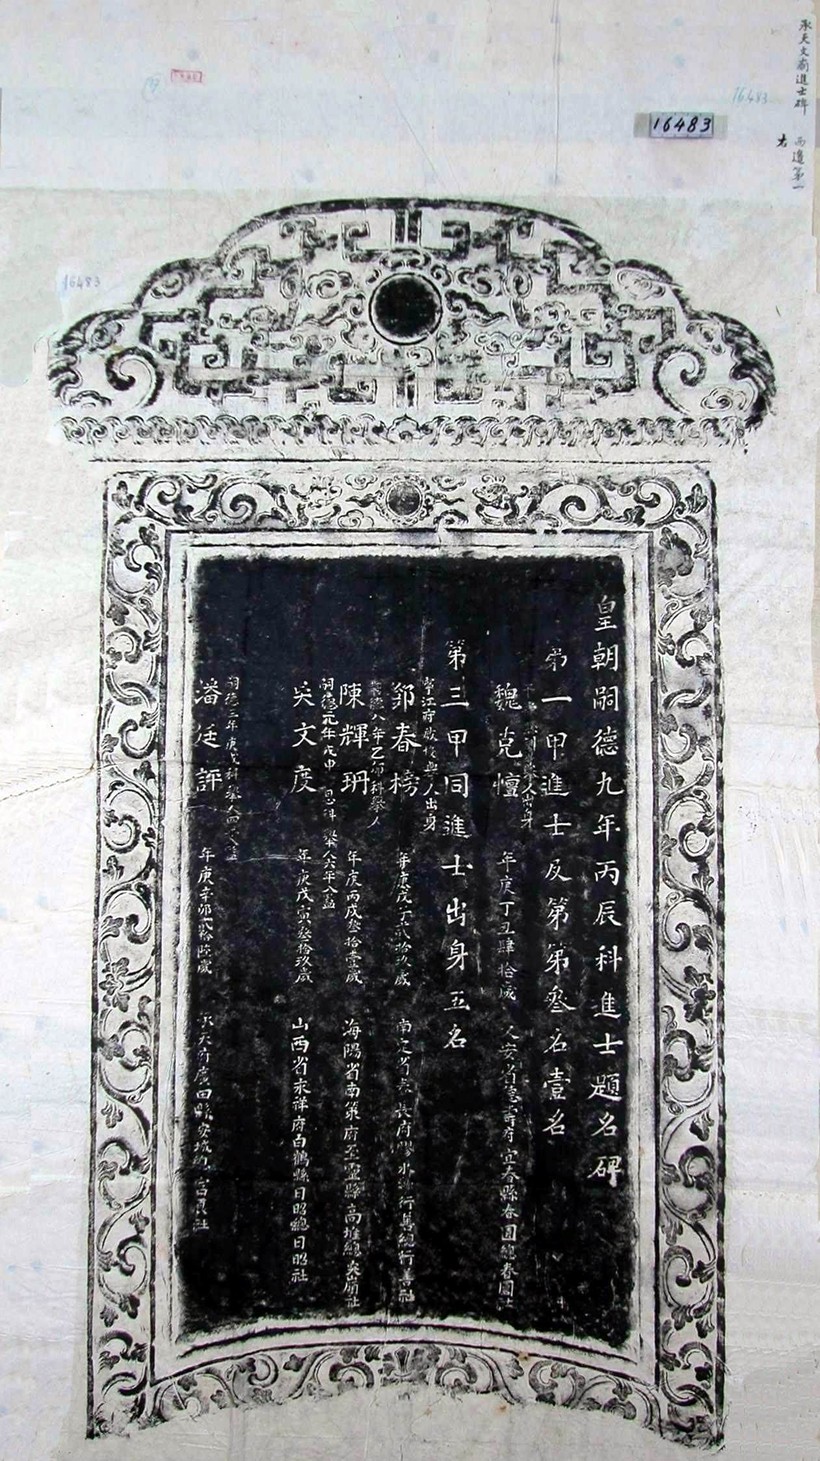 承天文廟進士碑
西邊第一
右
16483
16483
16483
皇朝嗣德九年丙辰科進士題名碑
第一甲進士及第第叁名壹名
舉人出身
魏克憻
年庚丁丑肆拾歲
安省德壽府宜春縣春園總春園社
第三甲同進士出身五名
人出身
鄧春榜
年庚戊子貳拾玖歲
南定省春長府膠水縣行善總行善社
八年乙卯科舉人
陳輝珊
年庚丙戌叁拾壹歲
海陽省南策府至靈縣高堆總
嗣德元年戊申恩科舉人
吳文度
年庚戊寅叁拾玖歲
山西省永祥府白鶴縣日昭總日昭社
嗣德三年庚戌科舉人
潘廷評
年庚辛卯貳拾陸歲
承天府廣田縣安城總